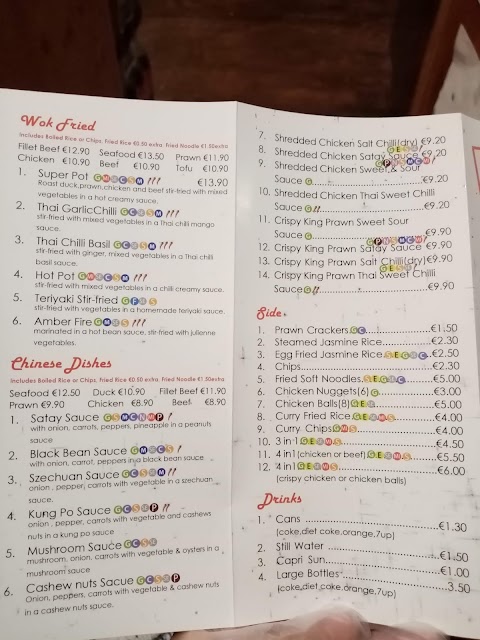 Wok Fried
Includes Boiled Rice or Chips, Fried Rice €0.50 extra, Fried Noodle €1.50extra
Fillet Beef €12.90 Seafood €13.50 Prawn €11.90
Chicken €10.90 Beef €10.90 Tofu €10.90
1. Super Pot €13.90
Roast duck,prawn,chicken and beef stir-fried with mixed
vegetables in a hot creamy sauce.
2. Thai GarlicChilli
stir-fried with mixed vegetables in a Thai chilli mango
sauce.
3. Thai Chilli Basil
stir-fried with ginger, mixed vegetables in a Thai chilli
basil sauce.
4. Hot Pot
stir-fried with mixed vegetables in a chilli creamy sauce.
5. Teriyaki Stir-fried
stir-fried with vegetables in a homemade teriyaki sauce.
6. Amber Fire
marinated in a hot bean sauce, stir-fried with julienne
vegetables.
Chinese Dishes
Includes Boiled Rice or Chips, Fried Rice €0.50 extra, Fried Noodle €1.50 extra
Seafood €12.50 Duck €10.90 Fillet Beef €11.90
Prawn €9.90 Chicken €8.90 Beef €8.90
1. Satay Sauce
with onion, carrots, peppers, pineapple in a peanuts
sauce
2. Black Bean Sauce
with onion, carrot, peppers in a black bean sauce
3. Szechuan Sauce
onion , pepper, carrots with vegetable in a szechuan
sauce.
4. Kung Po Sauce
onion , pepper, carrots with vegetable and cashews
nuts in a kung po sauce
5. Mushroom Sauce
onion, carrots with vegetable & oysters in a
mushroom sauce
6. Cashew nuts Sacue
Onion, peppers, carrots with vegetable & cashew nuts
in a cashew nuts sauce.
7. Shredded Chicken Salt Chilli(dry) €9.20
8. Shredded Chicken Satay Sauce €9.20
9. Shredded Chicken Sweet & Sour
Sauce €9.20
10. Shredded Chicken Thai Sweet Chilli
Sauce €9.20
11. Crispy King Prawn Sweet Sour
Sauce €9.90
12. Crispy King Prawn Satay Sauce €9.90
13. Crispy King Prawn Salt Chilli(dry)€9.90
14. Crispy King Prawn Thai Sweet Chilli
Sauce €9.90
Side
1. Prawn Crackers €1.50
2. Steamed Jasmine Rice €2.30
3. Egg Fried Jasmine Rice €2.50
4. Chips €2.30
5. Fried Soft Noodles €5.00
6. Chicken Nuggets(6) €3.00
7. Chicken Balls(8) €5.00
8. Curry Fried Rice €4.00
9. Curry Chips €4.00
10. 3 in1 €4.50
11. 4 in1(chicken or beef) €5.50
12. 4 in1 €6.00
(crispy chicken or chicken balls)
Drinks
1. Cans €1.30
(coke,diet coke,orange,7up)
2. Still Water €1.50
3. Capri Sun €1.00
4. Large Bottles 3.50
(coke,diet coke,orange,7up)